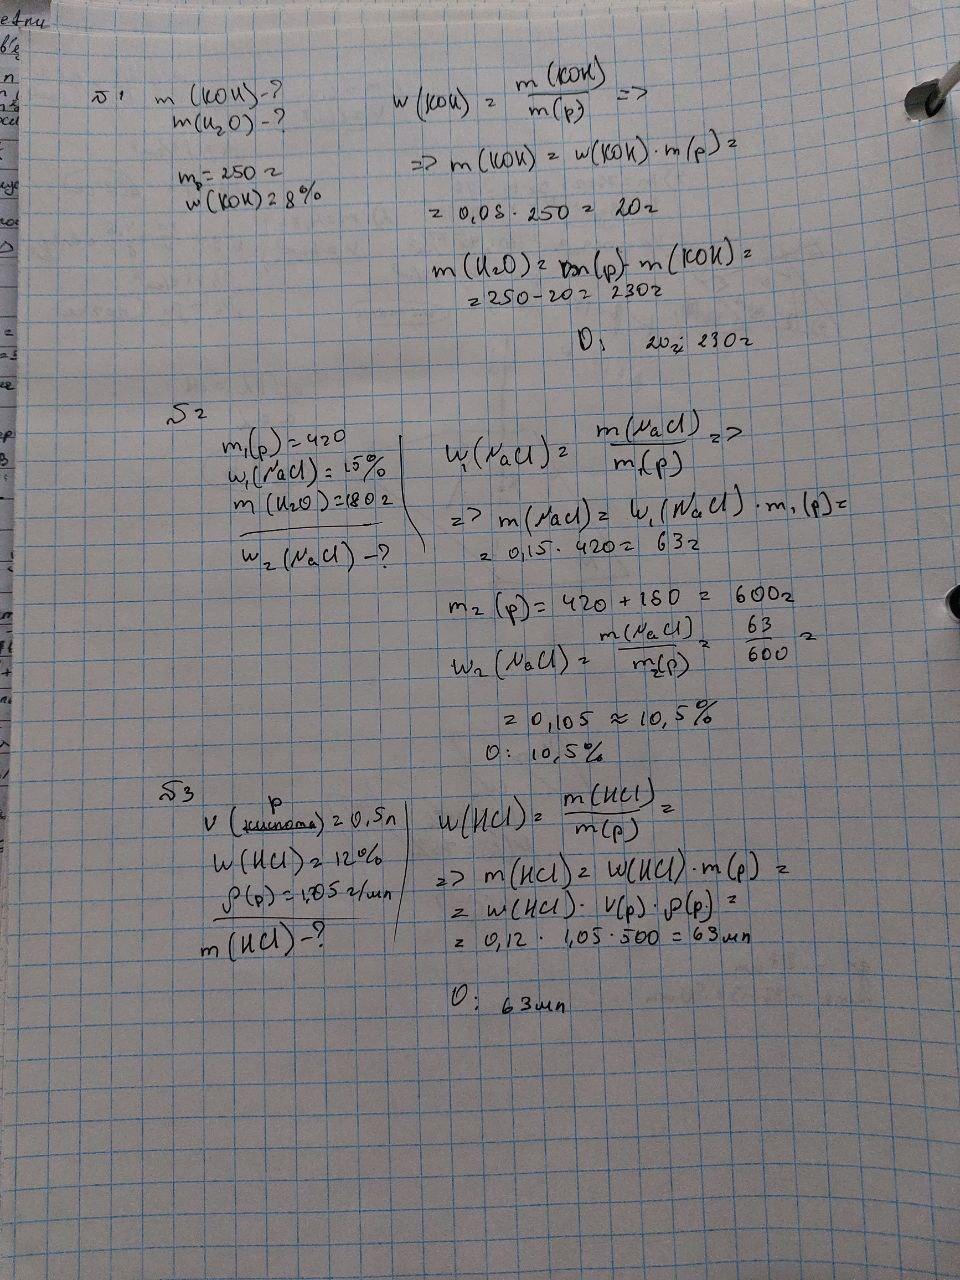 №1
m (KOH) - ?
m(H₂O) - ?
mр = 250 г
w(KOH) = 8%
w(KOH) = m(KOH)/m(р) =>
=> m(KOH) = w(KOH)·m(р) =
= 0,08 · 250 = 20г
m(H₂O) = m(р) - m(KOH) =
= 250 - 20 = 230г
О: 20г; 230г
№2
m₁(р) = 420
w₁(NaCl) = 15%
m(H₂O) = 180г
w₂(NaCl) - ?
w₁(NaCl) = m(NaCl)/m₁(р) =>
=> m(NaCl) = w₁(NaCl)·m₁(р) =
= 0,15 · 420 = 63г
m₂(р) = 420 + 180 = 600г
w₂(NaCl) = m(NaCl)/m₂(р) = 63/600 =
= 0,105 ≈ 10,5%
О: 10,5%
№3
р
V (кислота) = 0,5л
w(HCl) = 12%
ρ(р) = 1,05 г/мл
m(HCl) - ?
w(HCl) = m(HCl)/m(р) =
=> m(HCl) = w(HCl)·m(р) =
= w(HCl)·V(р)·ρ(р) =
= 0,12 · 1,05 · 500 = 63мл
О: 63мл